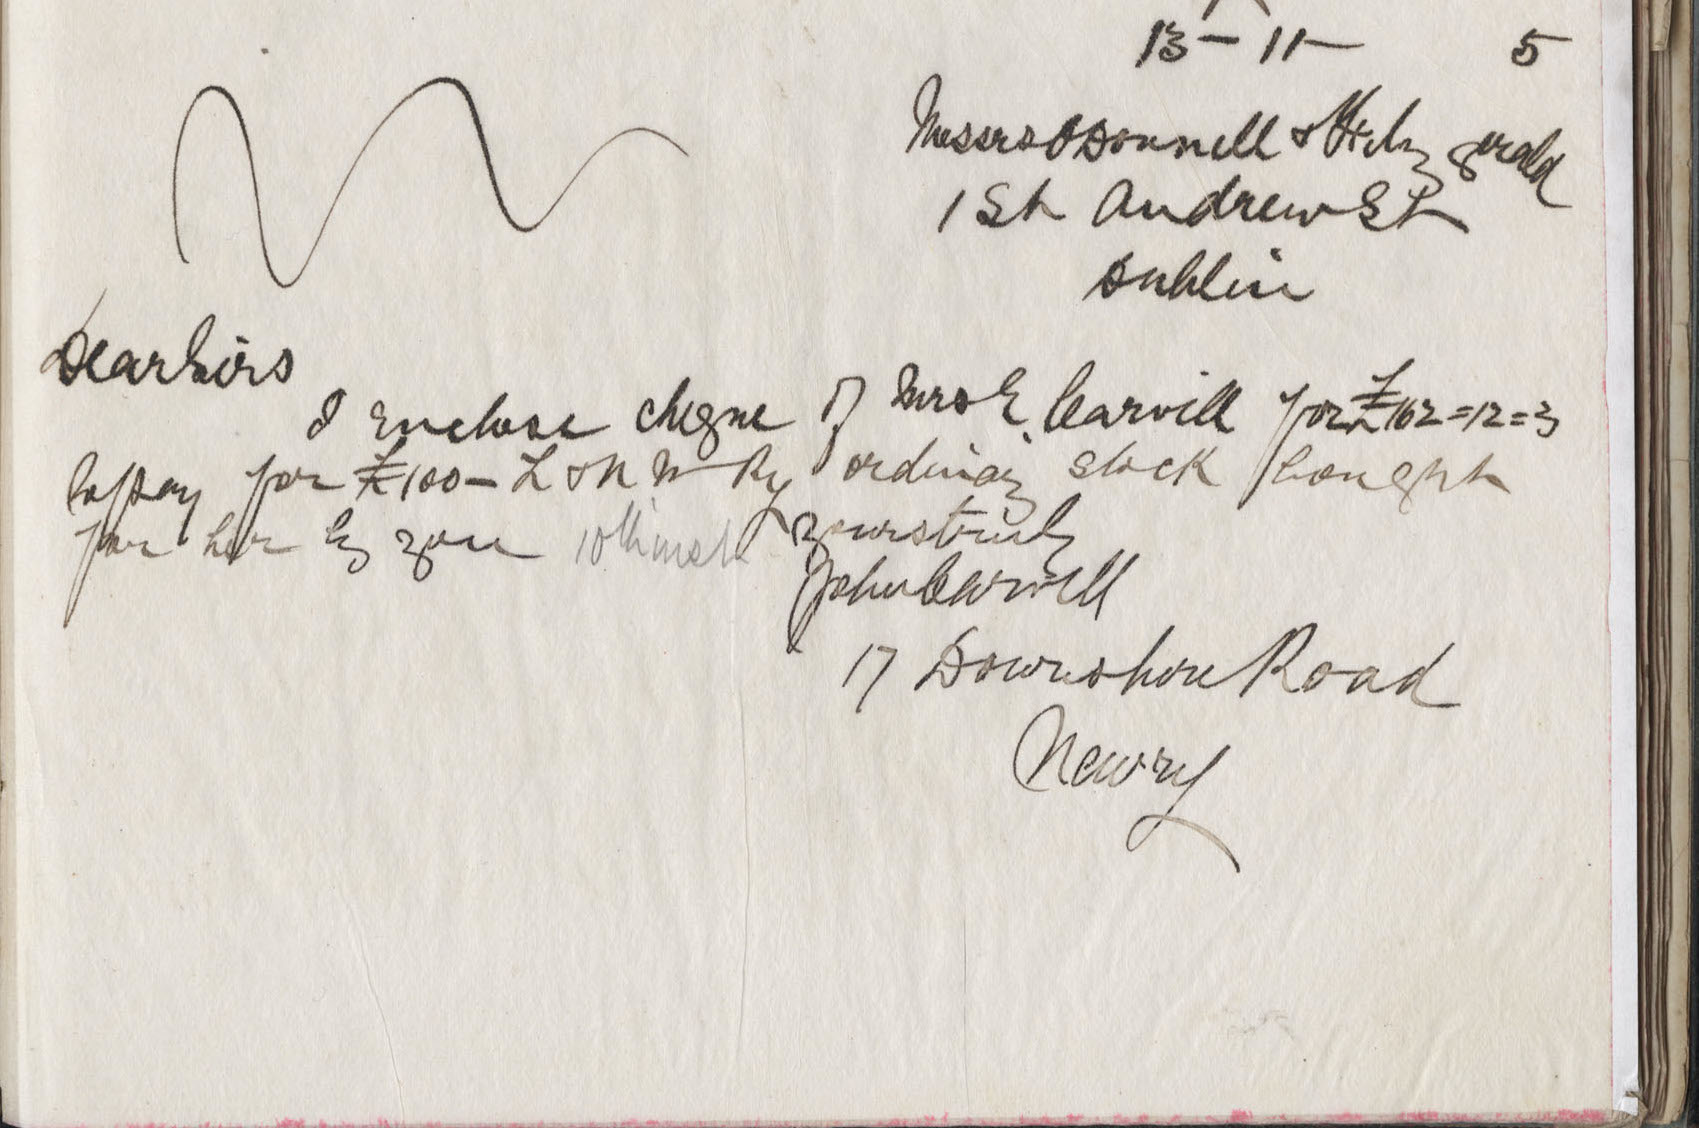 13 - 11 - 5
Messrs O'Donnell & Fitzgerald
1 St Andrew St
Dublin
Dear Sirs
I enclose cheque of Mrs E Carvill for £162=12=3
to pay for £100 - L & N W Ry ordinary stock bought
for her by you 10th inst yours truly
John Carvill
17 Downshire Road
Newry